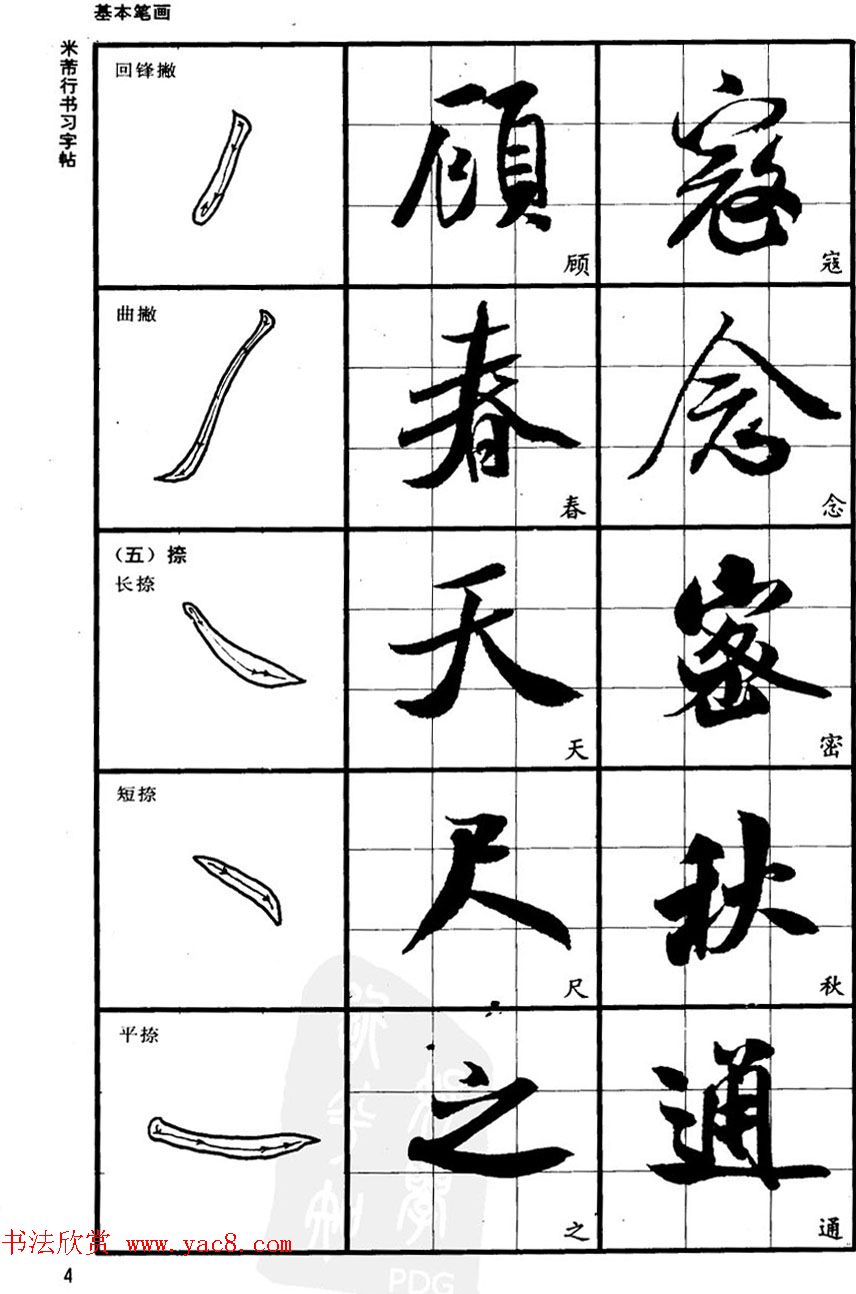 基本笔画
米芾行书习字帖
回锋撇
顾 顾
寇 寇
曲撇
春 春
念 念
（五）捺
长捺
天 天
密 密
短捺
尺 尺
秋 秋
平捺
之 之
通 通
书法欣赏 www.yac8.com
PDG
4